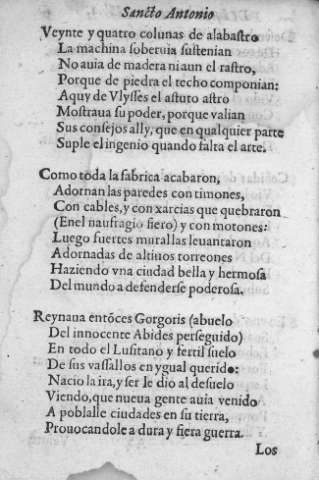 Sancto Antonio
Veynte y quatro colunas de alabastro
La machina soberuia sustenian
No auia de madera ni aun el rastro,
Porque de piedra el techo componian:
Aquy de Vlysses el astuto astro
Mostraua su poder, porque valian
Sus consejos ally, que en qualquier parte
Suple el ingenio quando falta el arte.
Como toda la fabrica acabaron,
Adornan las paredes con timones,
Con cables, y con xarcias que quebraron
(En el naufragio fiero) y con motones:
Luego fuertes murallas leuantaron
Adornadas de altiuos torreones
Haziendo vna ciudad bella y hermosa
Del mundo a defenderse poderosa.
Reynaua entõces Gorgoris (abuelo
Del innocente Abides perseguido)
En todo el Lusitano y fertil suelo
De sus vassallos en ygual querido:
Nacio la ira, y ser le dio al desuelo
Viendo, que nueua gente auia venido
A poblalle ciudades en su tierra,
Prouocandole a dura y fiera guerra.
Los